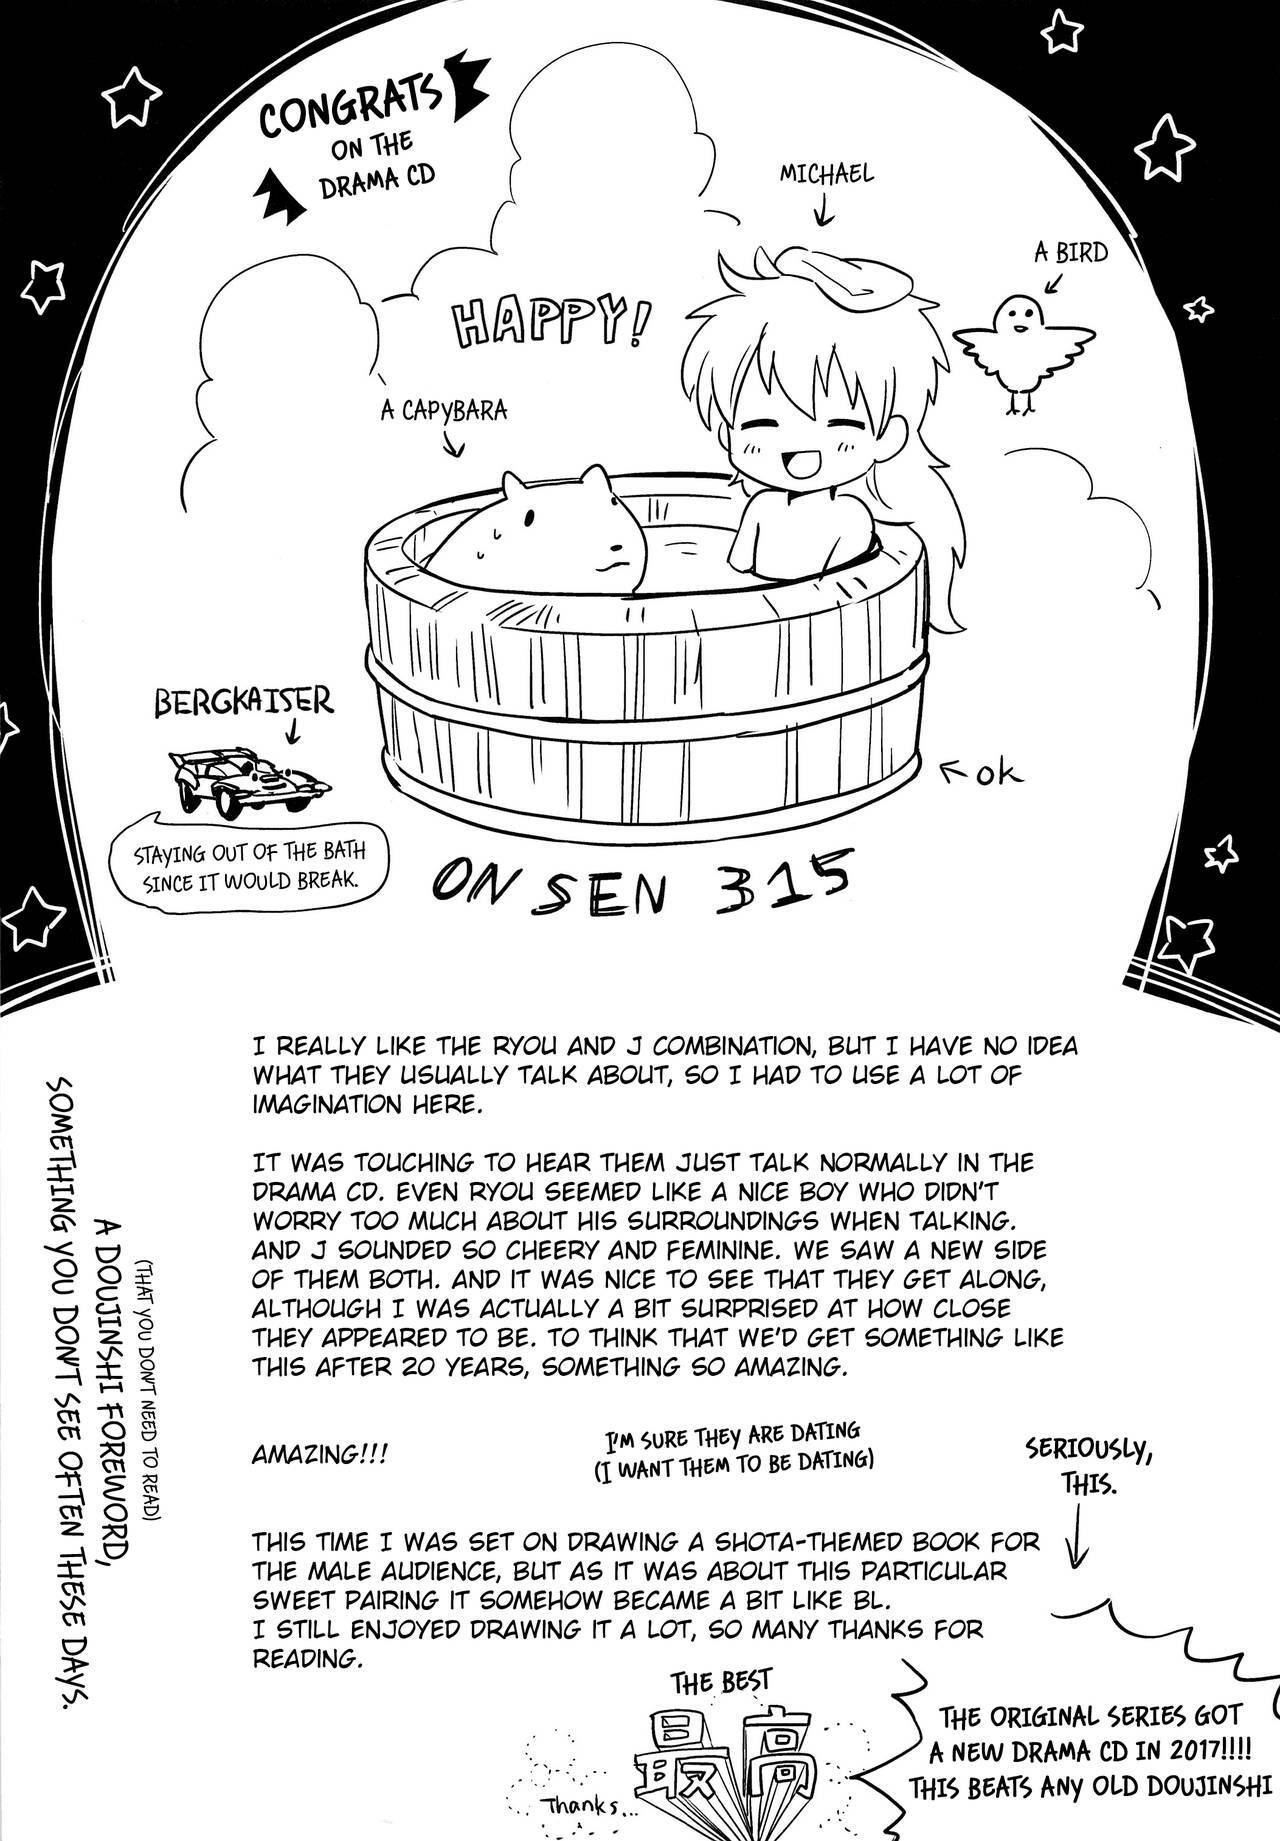 CONGRATS
ON THE
DRAMA CD
MICHAEL
A BIRD
HAPPY!
A CAPYBARA
BERGKAISER
STAYING OUT OF THE BATH
SINCE IT WOULD BREAK.
OK
ONSEN 315
I REALLY LIKE THE RYOU AND J COMBINATION, BUT I HAVE NO IDEA
WHAT THEY USUALLY TALK ABOUT, SO I HAD TO USE A LOT OF
IMAGINATION HERE.
IT WAS TOUCHING TO HEAR THEM JUST TALK NORMALLY IN THE
DRAMA CD. EVEN RYOU SEEMED LIKE A NICE BOY WHO DIDN'T
WORRY TOO MUCH ABOUT HIS SURROUNDINGS WHEN TALKING.
AND J SOUNDED SO CHEERY AND FEMININE. WE SAW A NEW SIDE
OF THEM BOTH. AND IT WAS NICE TO SEE THAT THEY GET ALONG,
ALTHOUGH I WAS ACTUALLY A BIT SURPRISED AT HOW CLOSE
THEY APPEARED TO BE. TO THINK THAT WE'D GET SOMETHING LIKE
THIS AFTER 20 YEARS, SOMETHING SO AMAZING.
AMAZING!!!
I'M SURE THEY ARE DATING
(I WANT THEM TO BE DATING)
SERIOUSLY,
THIS.
THIS TIME I WAS SET ON DRAWING A SHOTA-THEMED BOOK FOR
THE MALE AUDIENCE, BUT AS IT WAS ABOUT THIS PARTICULAR
SWEET PAIRING IT SOMEHOW BECAME A BIT LIKE BL.
I STILL ENJOYED DRAWING IT A LOT, SO MANY THANKS FOR
READING.
(THAT YOU DON'T NEED TO READ)
A DOUJINSHI FOREWORD,
SOMETHING YOU DON'T SEE OFTEN THESE DAYS.
THE BEST
最高
Thanks...
THE ORIGINAL SERIES GOT
A NEW DRAMA CD IN 2017!!!!
THIS BEATS ANY OLD DOUJINSHI